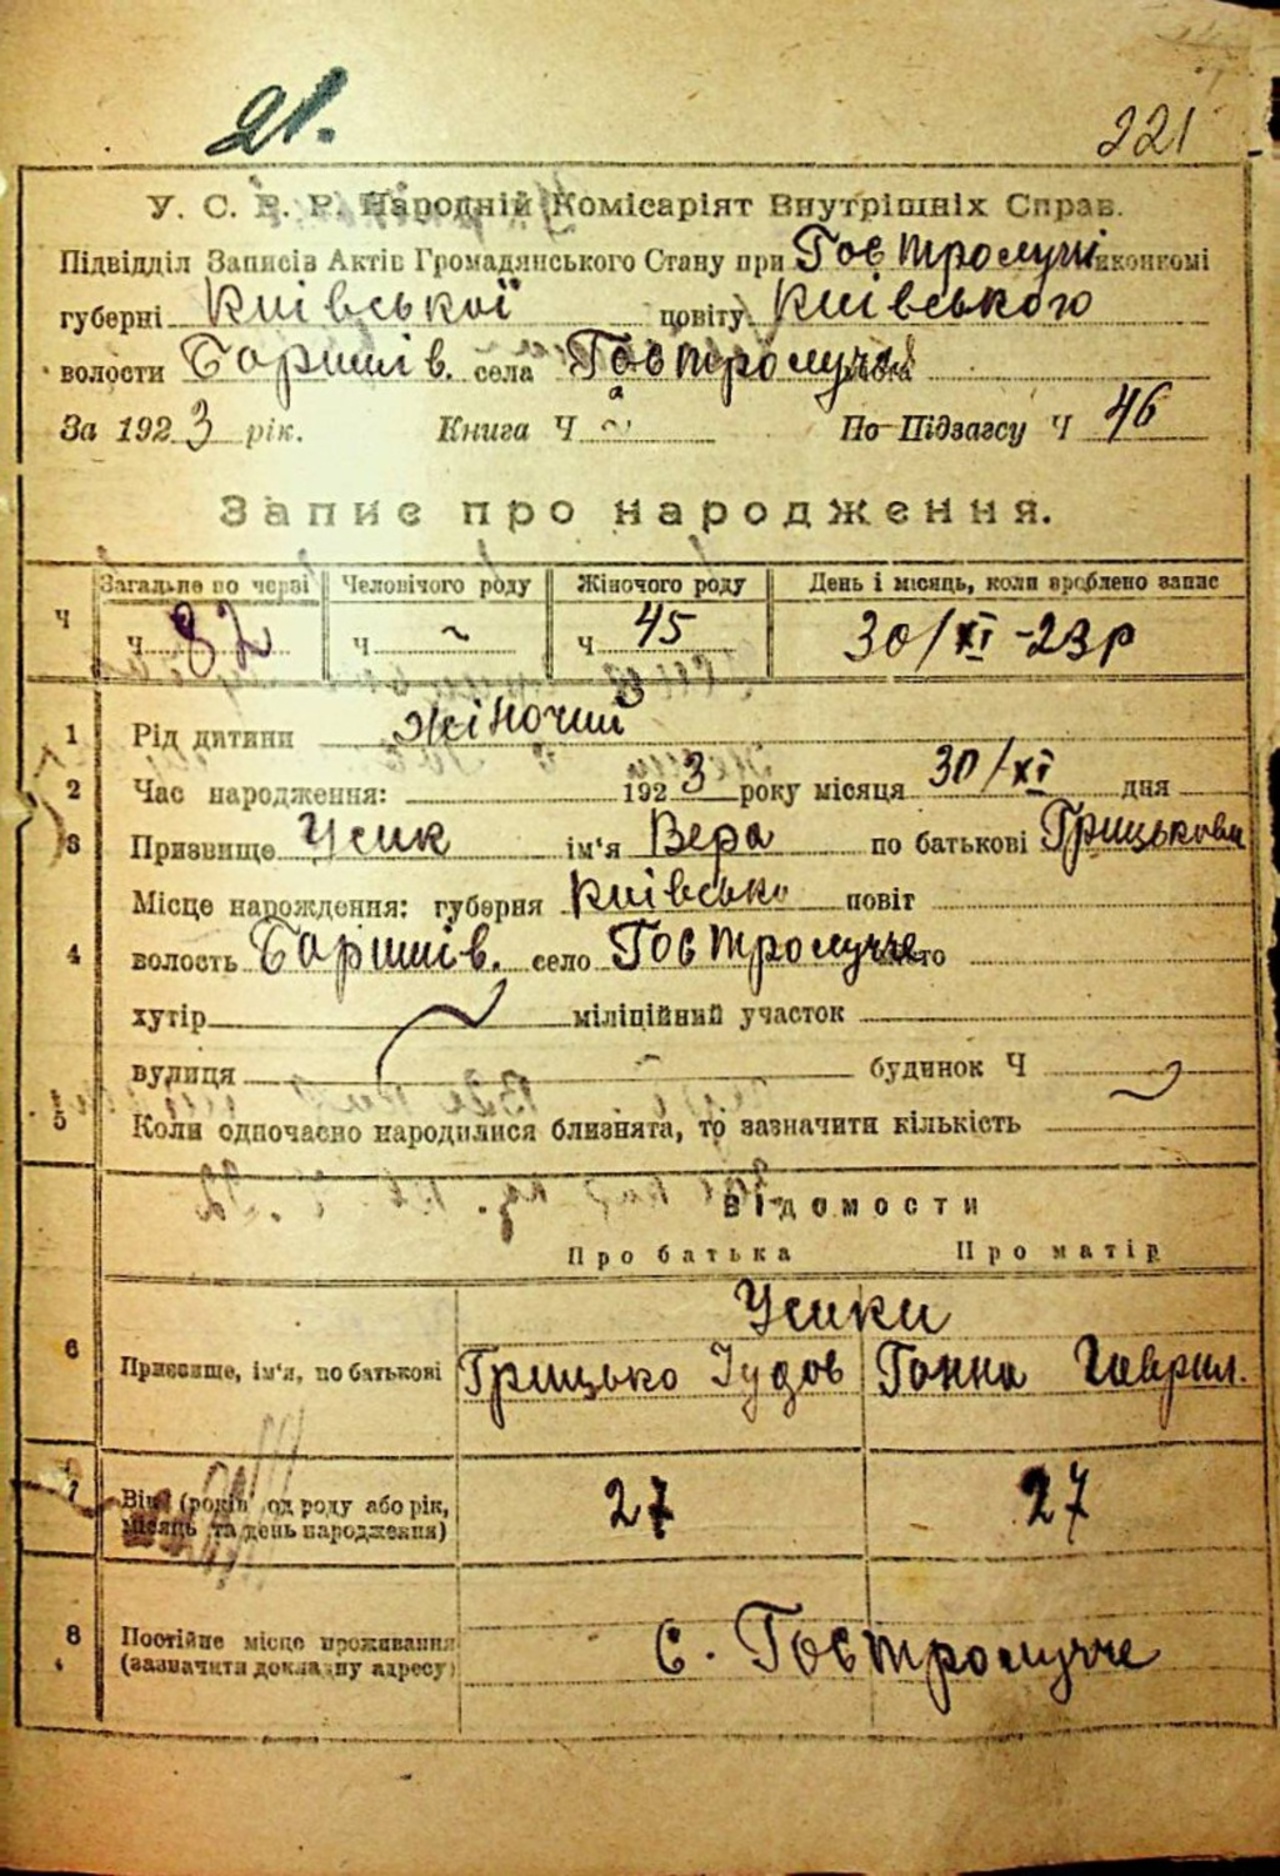 21.
221
У. С. Р. Р. Народній Комісаріят Внутрішніх Справ.
Підвідділ Записів Актів Громадянського Стану при Гостролучі виконкомі
губерні Київської повіту Київського
волости Баришів. села Гостролучча
За 1923 рік. Книга Ч ~ По Підзагсу Ч 46
Запис про народження.
Загальне по черзі Человічого роду Жіночого роду День і місяць, коли зроблено запис
Ч Ч 82 Ч ~ Ч 45 30/XI-23р
1 Рід дитини жіночий
2 Час народження: 1923 року місяця 30/XI дня
3 Призвище Усик ім'я Вера по батькові Грицькови
Місце народження: губерня Київсько повіт
4 волость Баришів. село Гостролучче
хутір міліційний участок
вулиця будинок Ч
5 Коли одночасно народилися близнята, то зазначити кількість
Відомости
Про батька Про матір
Усики
6 Призвище, ім'я, по батькові Грицько Іудов Ганна Гаврил.
7 Вік (років од роду або рік, 27 27
місяць та день народження)
8 Постійне місце проживання с. Гостролучче
(зазначити докладну адресу)